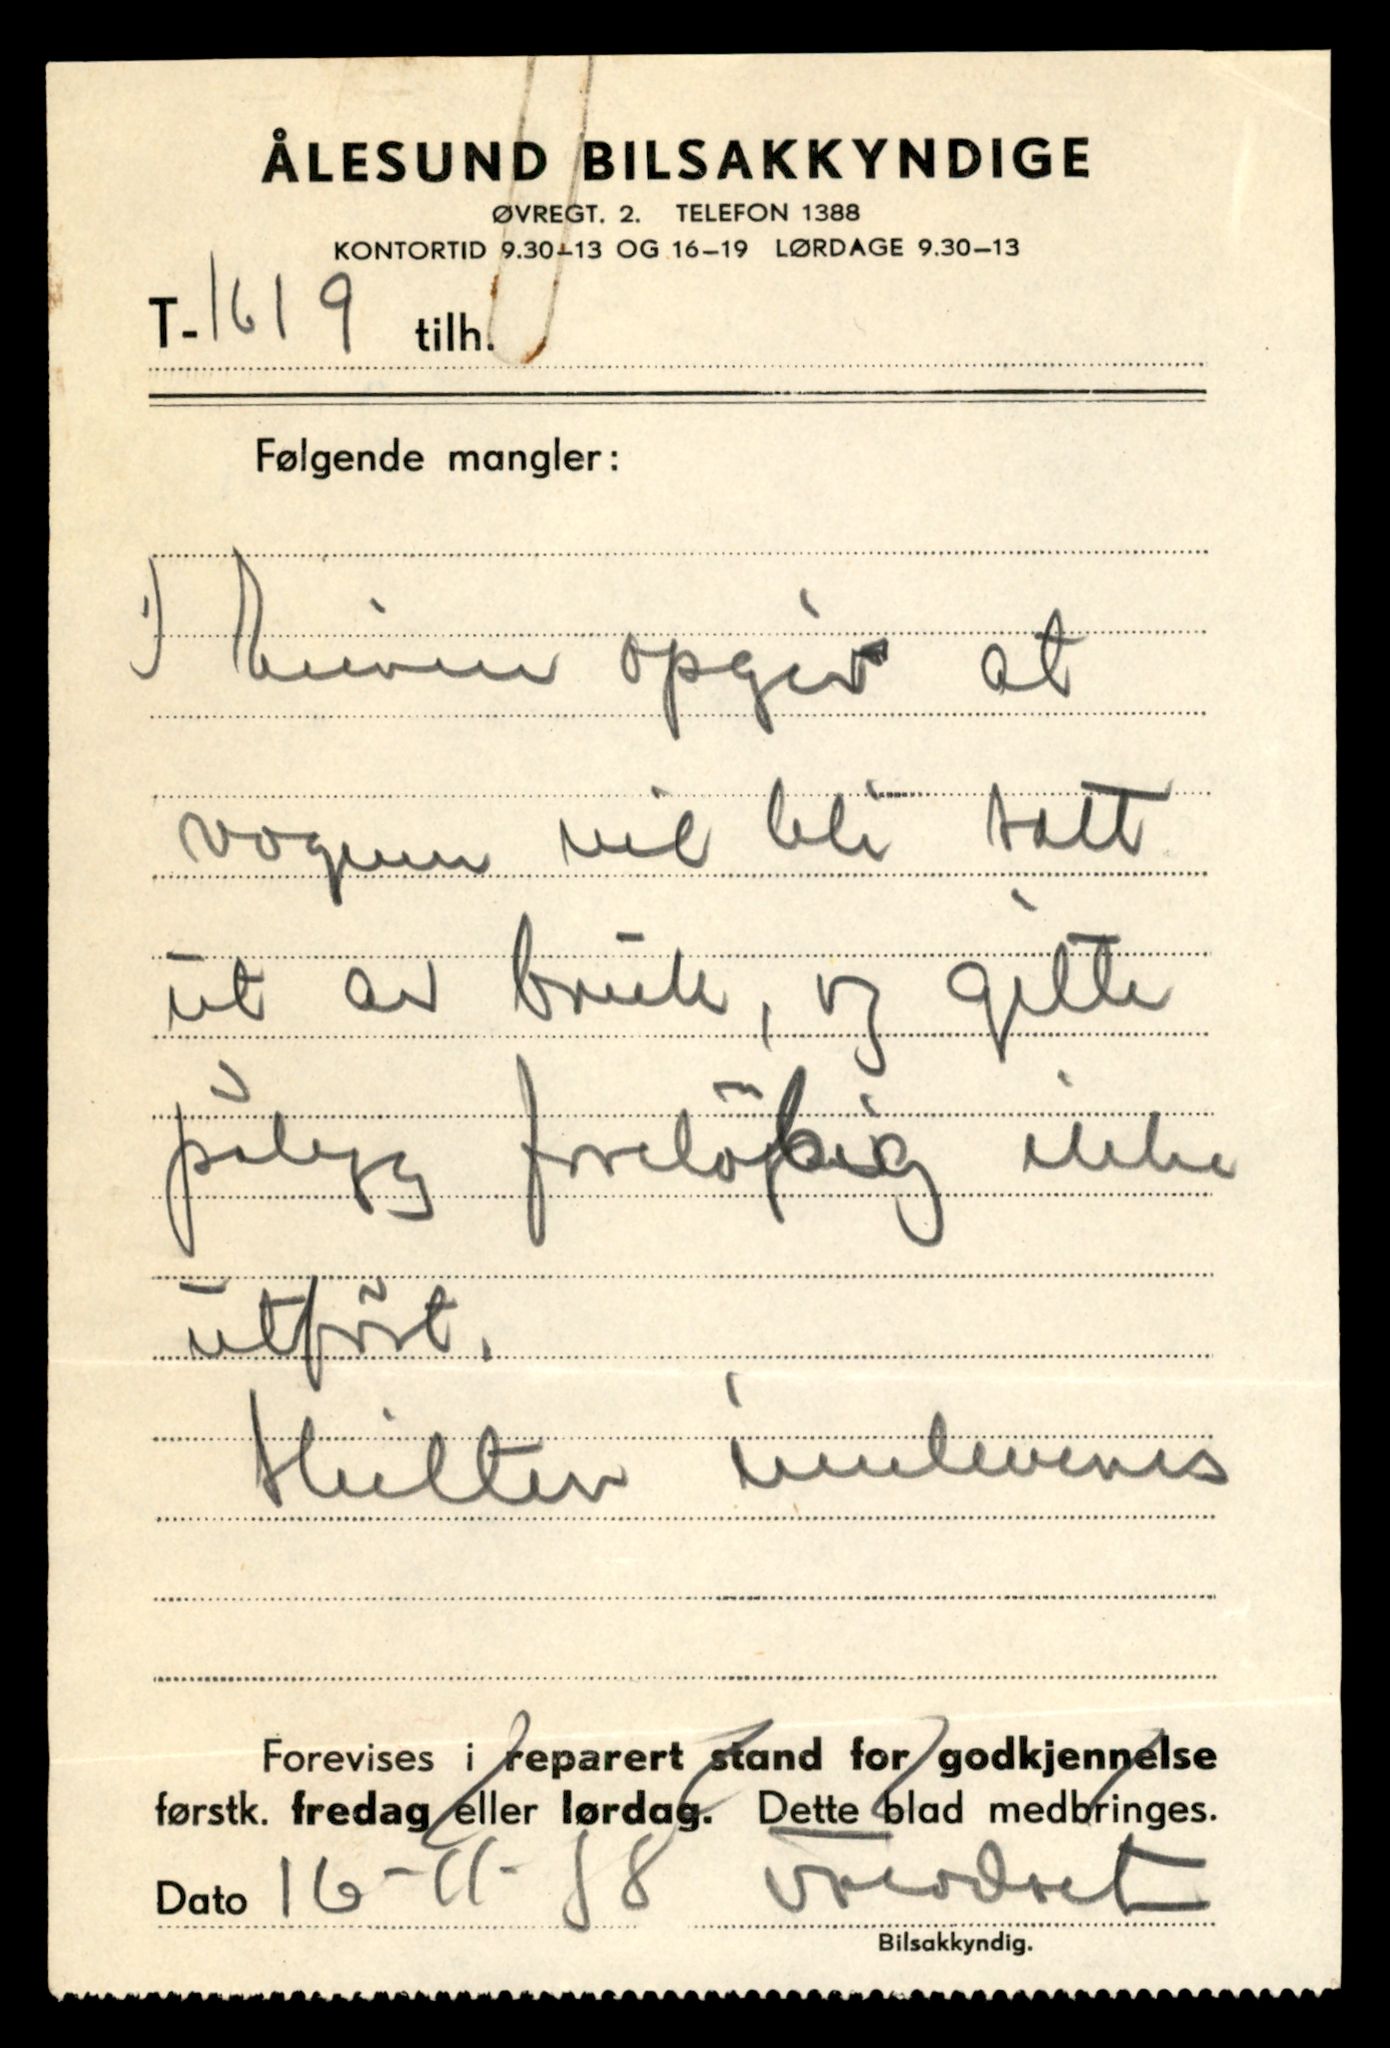 ÅLESUND BILSAKKYNDIGE
ØVREGT. 2. TELEFON 1388
KONTORTID 9.30–13 OG 16–19 LØRDAGE 9.30–13
T-1619 tilh.
Følgende mangler:
opgir at
vognen vil bli satt
ut av bruk, og gitte
pålegg foreløbig ikke
utført.
Skilter innleveres
Forevises i reparert stand for godkjennelse
førstk. fredag eller lørdag. Dette blad medbringes.
Dato 16-11-58
Bilsakkyndig.